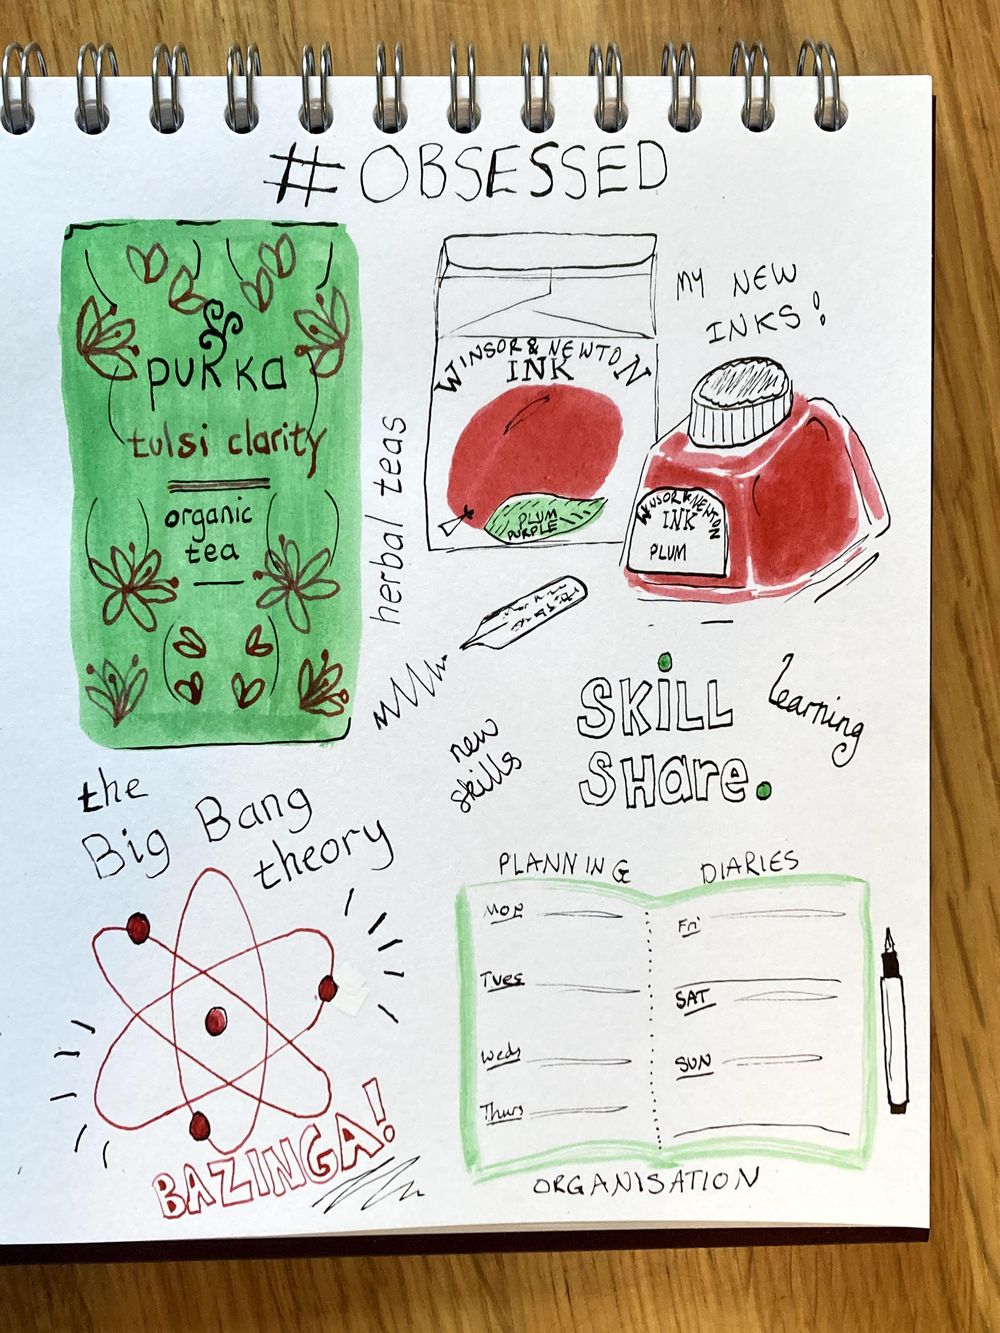 #OBSESSED
pukka
tulsi clarity
organic
tea
herbal teas
WINSOR & NEWTON
INK
PLUM
PURPLE
MY NEW
INKS!
WINSOR & NEWTON
INK
PLUM
new
skills
SKiLL
SHare.
Learning
the
Big Bang
theory
BAZINGA!
PLANNING DIARIES
Mon
Tues
Weds
Thurs
Fri
SAT
SUN
ORGANISATION